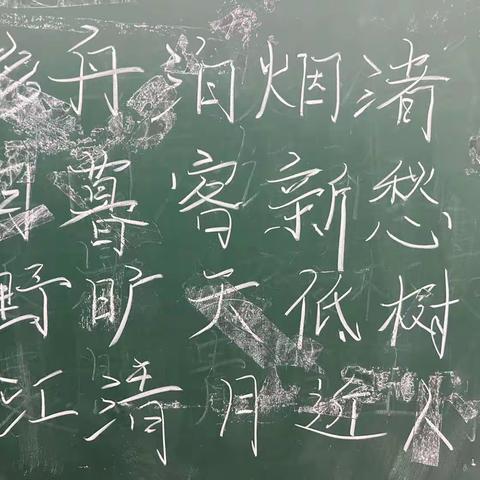 移舟泊烟渚
日暮客新愁
野旷天低树
江清月近人